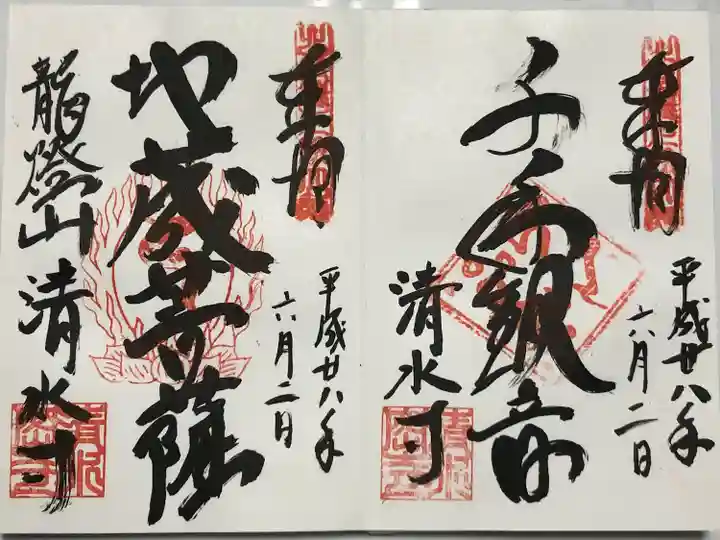 奉拝
平成廿八年
六月二日
千手観音
清水寺
奉拝
平成廿八年
六月二日
地蔵菩薩
龍燈山 清水寺